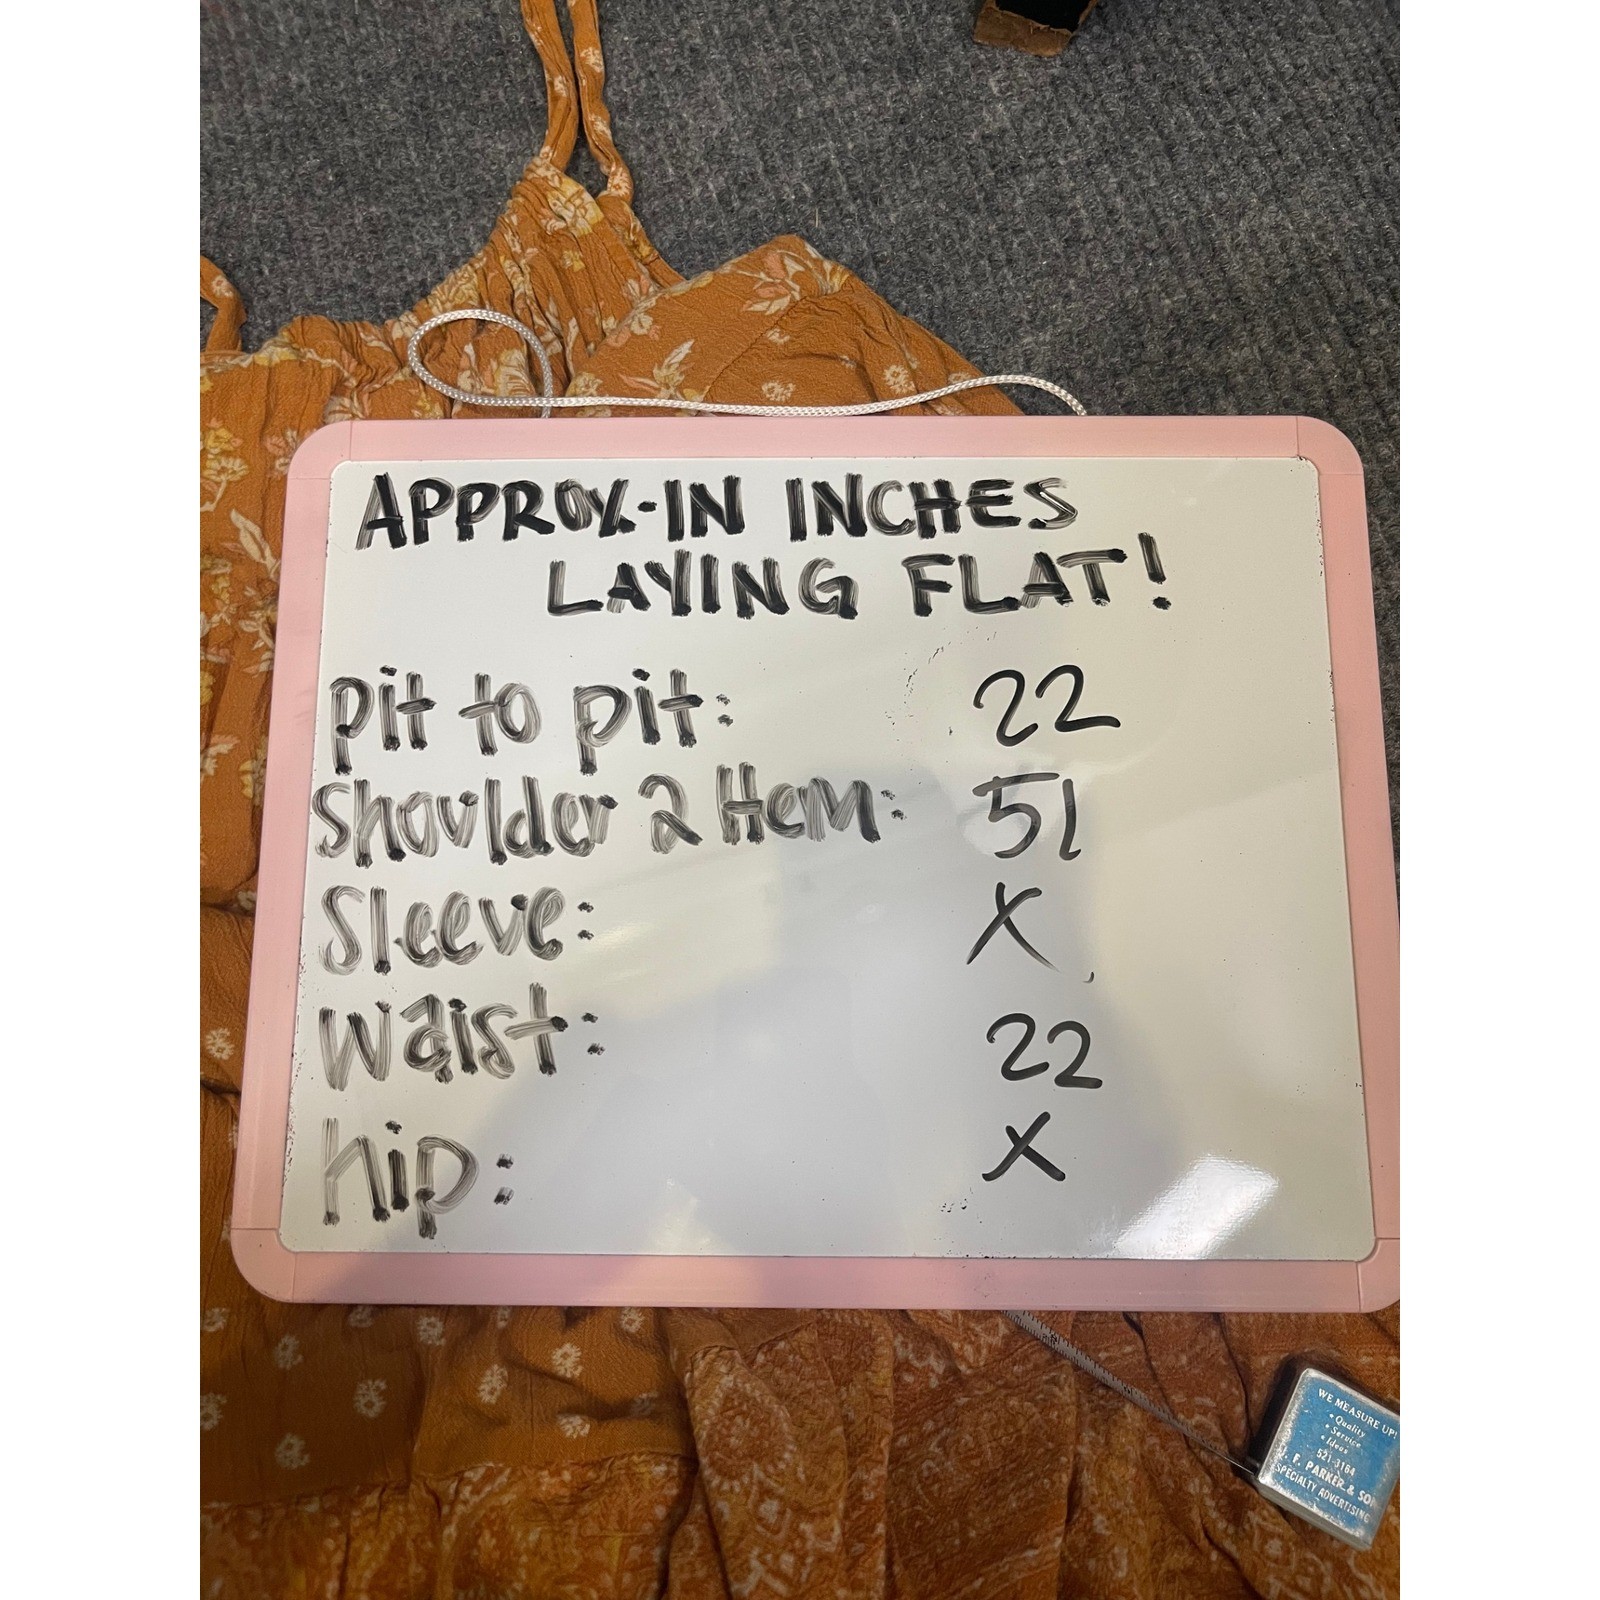 APPROX-IN INCHES
LAYING FLAT!
pit to pit: 22
Shoulder 2 Hem: 51
Sleeve: X
waist: 22
hip: X
WE MEASURE UP!
• Quality
• Service
• Ideas
521-3164
F. PARKER & SON
SPECIALTY ADVERTISING